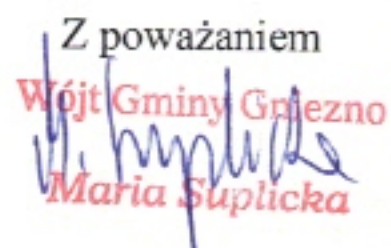 Z poważaniem
Wójt Gminy Gniezno
Maria Suplicka